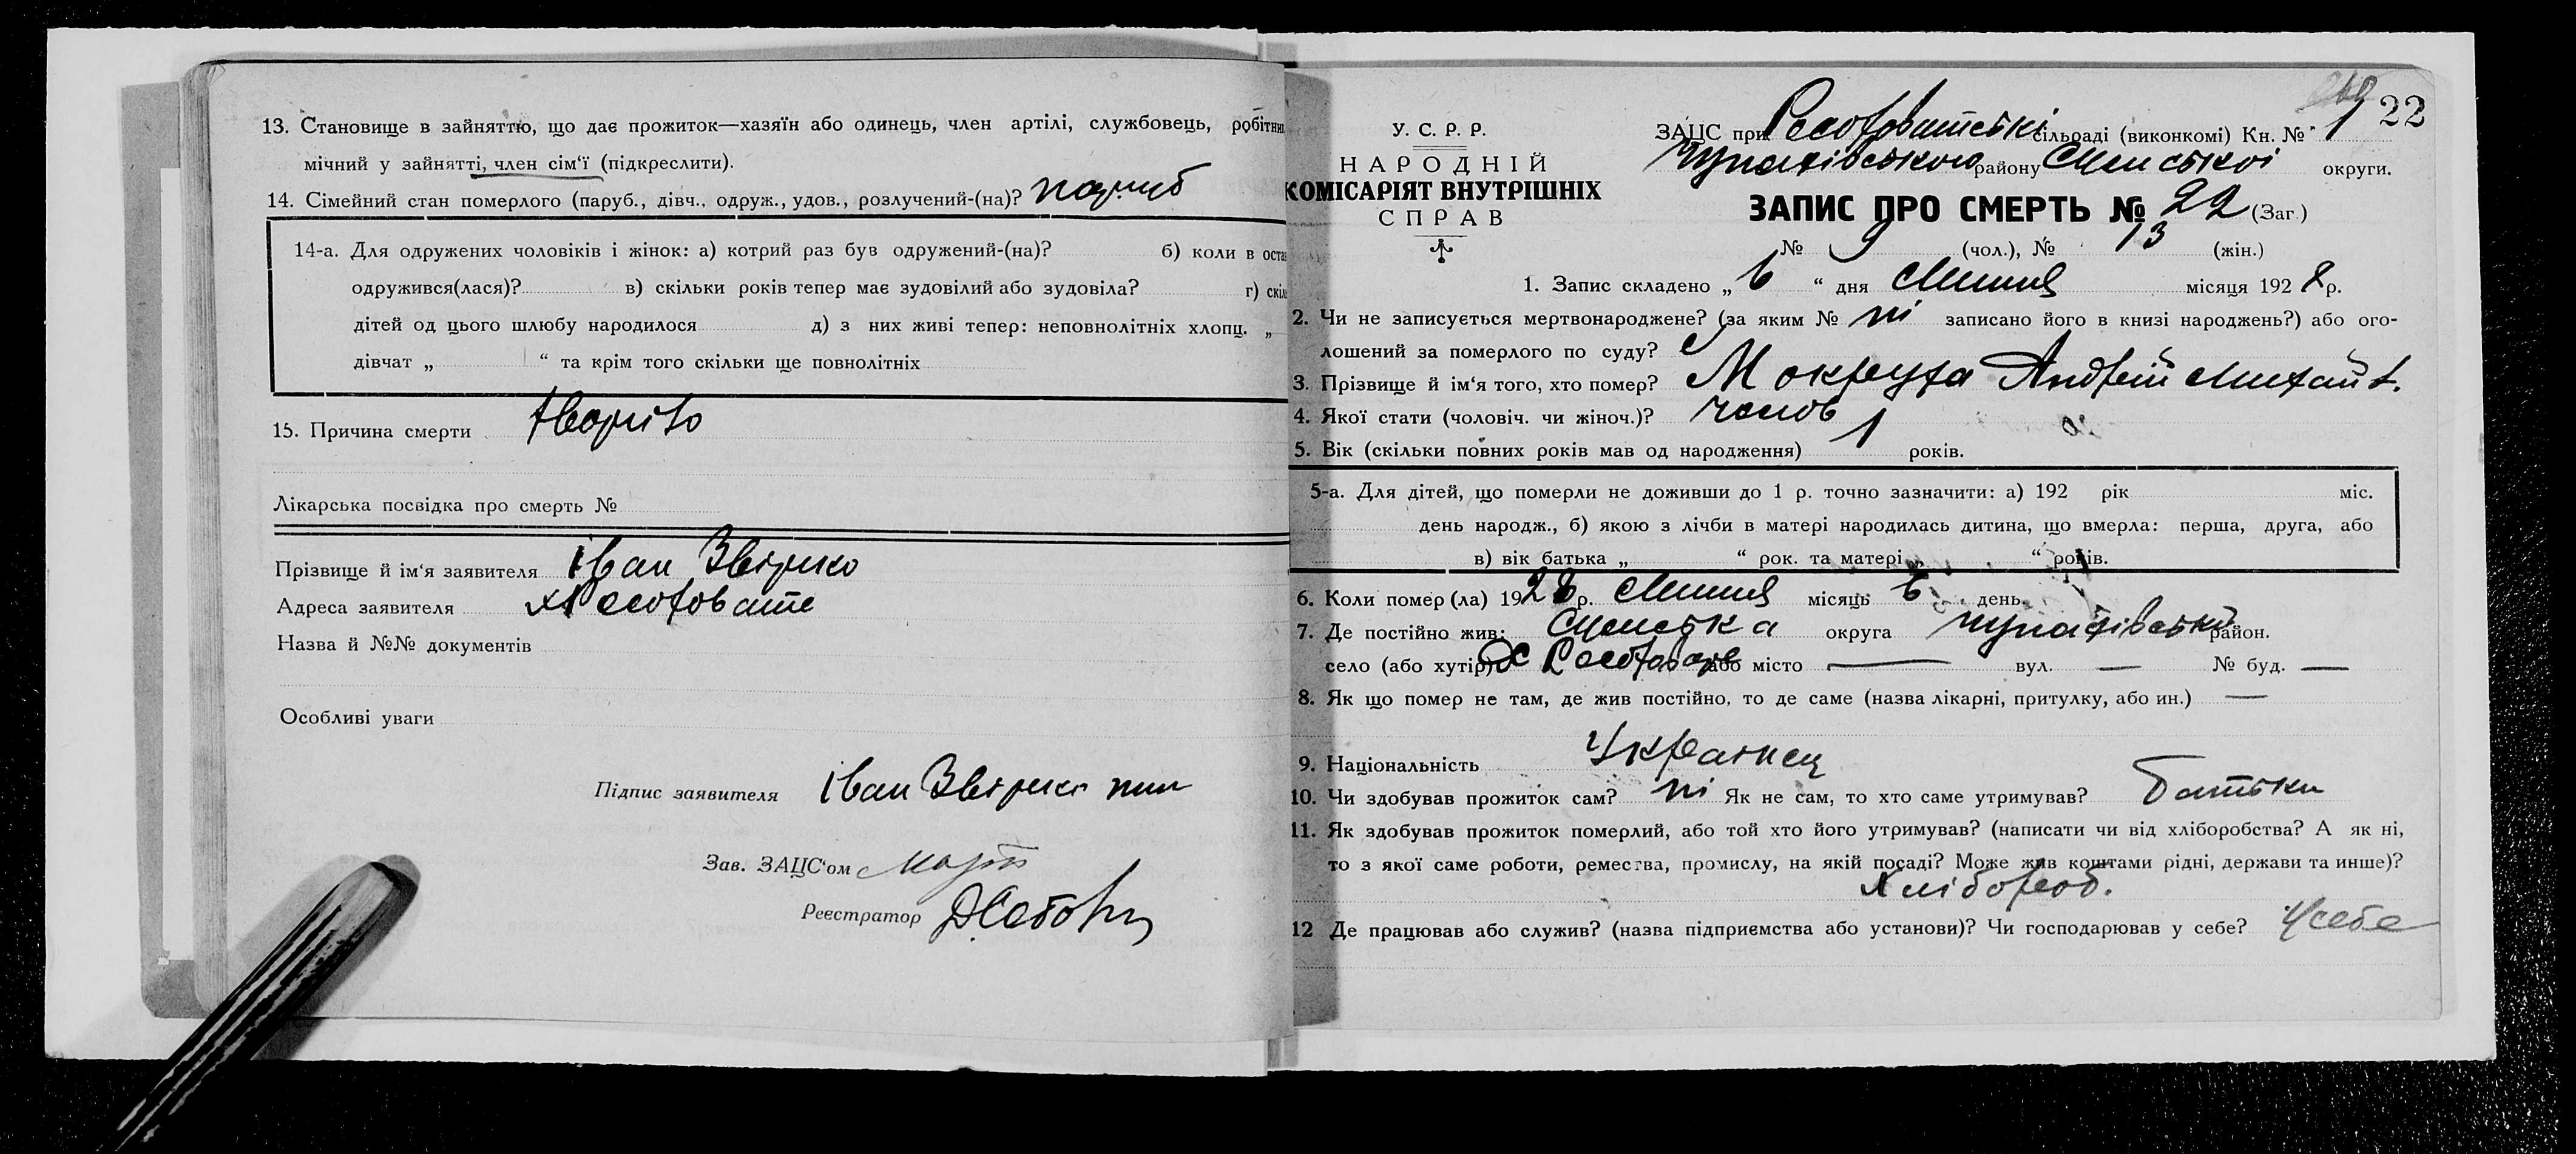 13. Становище в зайняттю, що дає прожиток—хазяїн або одинець, член артілі, службовець, робітни
мічний у зайнятті, член сім'ї (підкреслити).
14. Сімейний стан померлого (паруб., дівч., одруж., удов., розлучений-(на)? паруб
14-а. Для одружених чоловіків і жінок: а) котрий раз був одружений-(на)? б) коли в оста
одружився(лася)? в) скільки років тепер має зудовілий або зудовіла? г) скіль
дітей од цього шлюбу народилося д) з них живі тепер: неповнолітніх хлопц. „
дівчат „ “ та крім того скільки ще повнолітніх
15. Причина смерти
Лікарська посвідка про смерть №
Прізвище й ім'я заявителя Іван Звірко
Адреса заявителя
Назва й №№ документів
Особливі уваги
Підпис заявителя Іван
Зав. ЗАЦС'ом
Реєстратор
22
У. С. Р. Р.
НАРОДНІЙ
КОМІСАРІЯТ ВНУТРІШНІХ
СПРАВ
ЗАЦС при сільраді (виконкомі) Кн. № 1
Чупахівського району Сумської округи.
ЗАПИС ПРО СМЕРТЬ № 22 (Заг.)
№ 9 (чол.), № 13 (жін.)
1. Запис складено „ 6 “ дня Липня місяця 1928 р.
2. Чи не записується мертвонароджене? (за яким № ні записано його в книзі народжень?) або ого-
лошений за померлого по суду?
3. Прізвище й ім'я того, хто помер? Мокруха Андрій Михайл.
4. Якої стати (чоловіч. чи жіноч.)? чолов
5. Вік (скільки повних років мав од народження) 1 років.
5-а. Для дітей, що померли не доживши до 1 р. точно зазначити: а) 192 рік міс.
день народж., б) якою з лічби в матері народилась дитина, що вмерла: перша, друга, або
в) вік батька „ “ рок. та матері „ “ років.
6. Коли помер (ла) 1928 р. Липня місяць 6 день
7. Де постійно жив: Сумська округа Чупахівський район.
село (або хутір) або місто — вул. — № буд. —
8. Як що помер не там, де жив постійно, то де саме (назва лікарні, притулку, або ин.) —
9. Національність Українец
10. Чи здобував прожиток сам? ні Як не сам, то хто саме утримував? Батьки
11. Як здобував прожиток померлий, або той хто його утримував? (написати чи від хліборобства? А як ні,
то з якої саме роботи, ремества, промислу, на якій посаді? Може жив коштами рідні, держави та инше)?
Хлібороб.
12 Де працював або служив? (назва підприємства або установи)? Чи господарював у себе? У себе